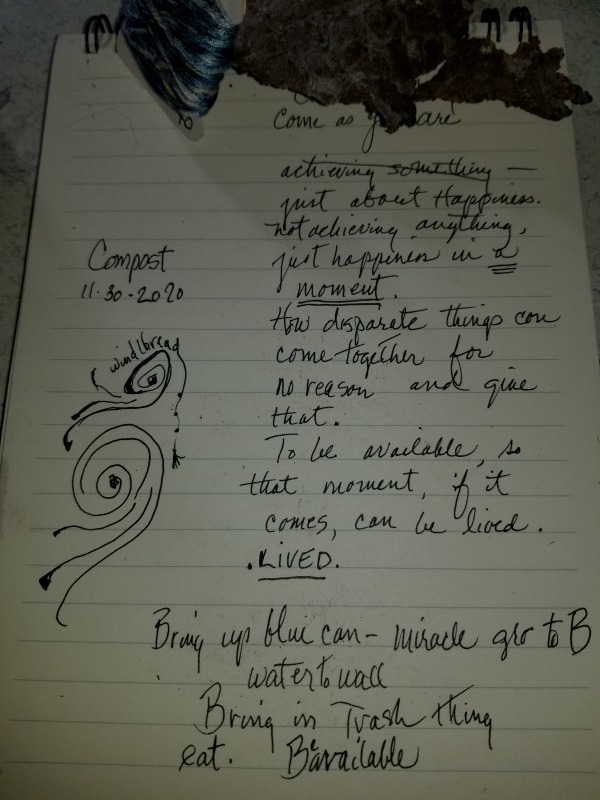 Come as you are
achieving something —
just about Happiness.
not achieving anything,
just happiness in a
moment.
How disparate things can
come together for
no reason and give
that.
To be available, so
that moment, if it
comes, can be lived.
.LIVED.
Compost
11-30-2020
Bring up blue can - miracle gro to B
water to wall
Bring in Trash thing
eat. Be available